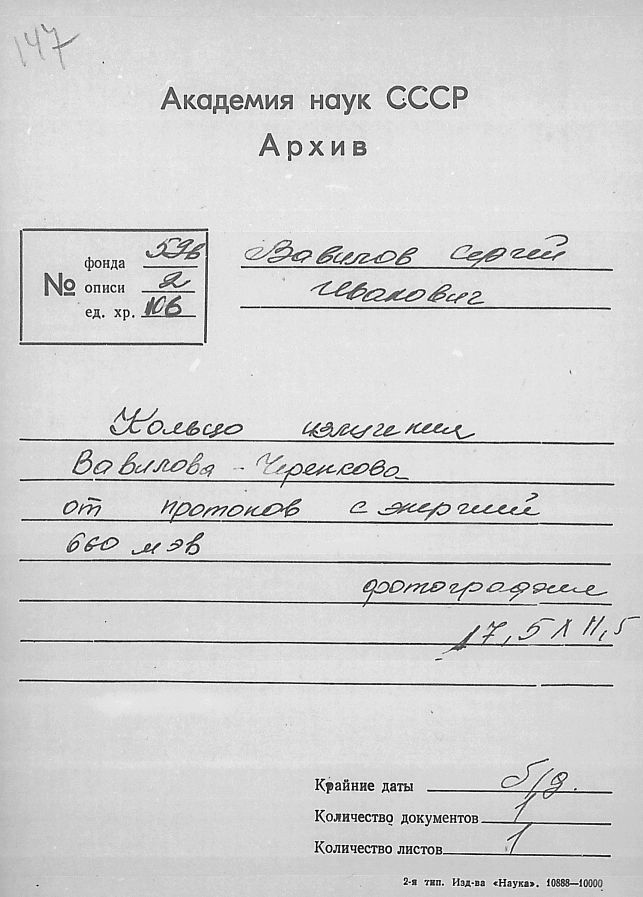 147
Академия наук СССР
Архив
№
фонда 596
описи 2
ед. хр. 106
Вавилов Сергей
Иванович
Кольцо излучения
Вавилова - Черенкова
от протонов с энергией
660 мэв
фотография
17,5 X 11,5
Крайние даты б/д.
Количество документов 1
Количество листов 1
2-я тип. Изд-ва «Наука». 10888—10000